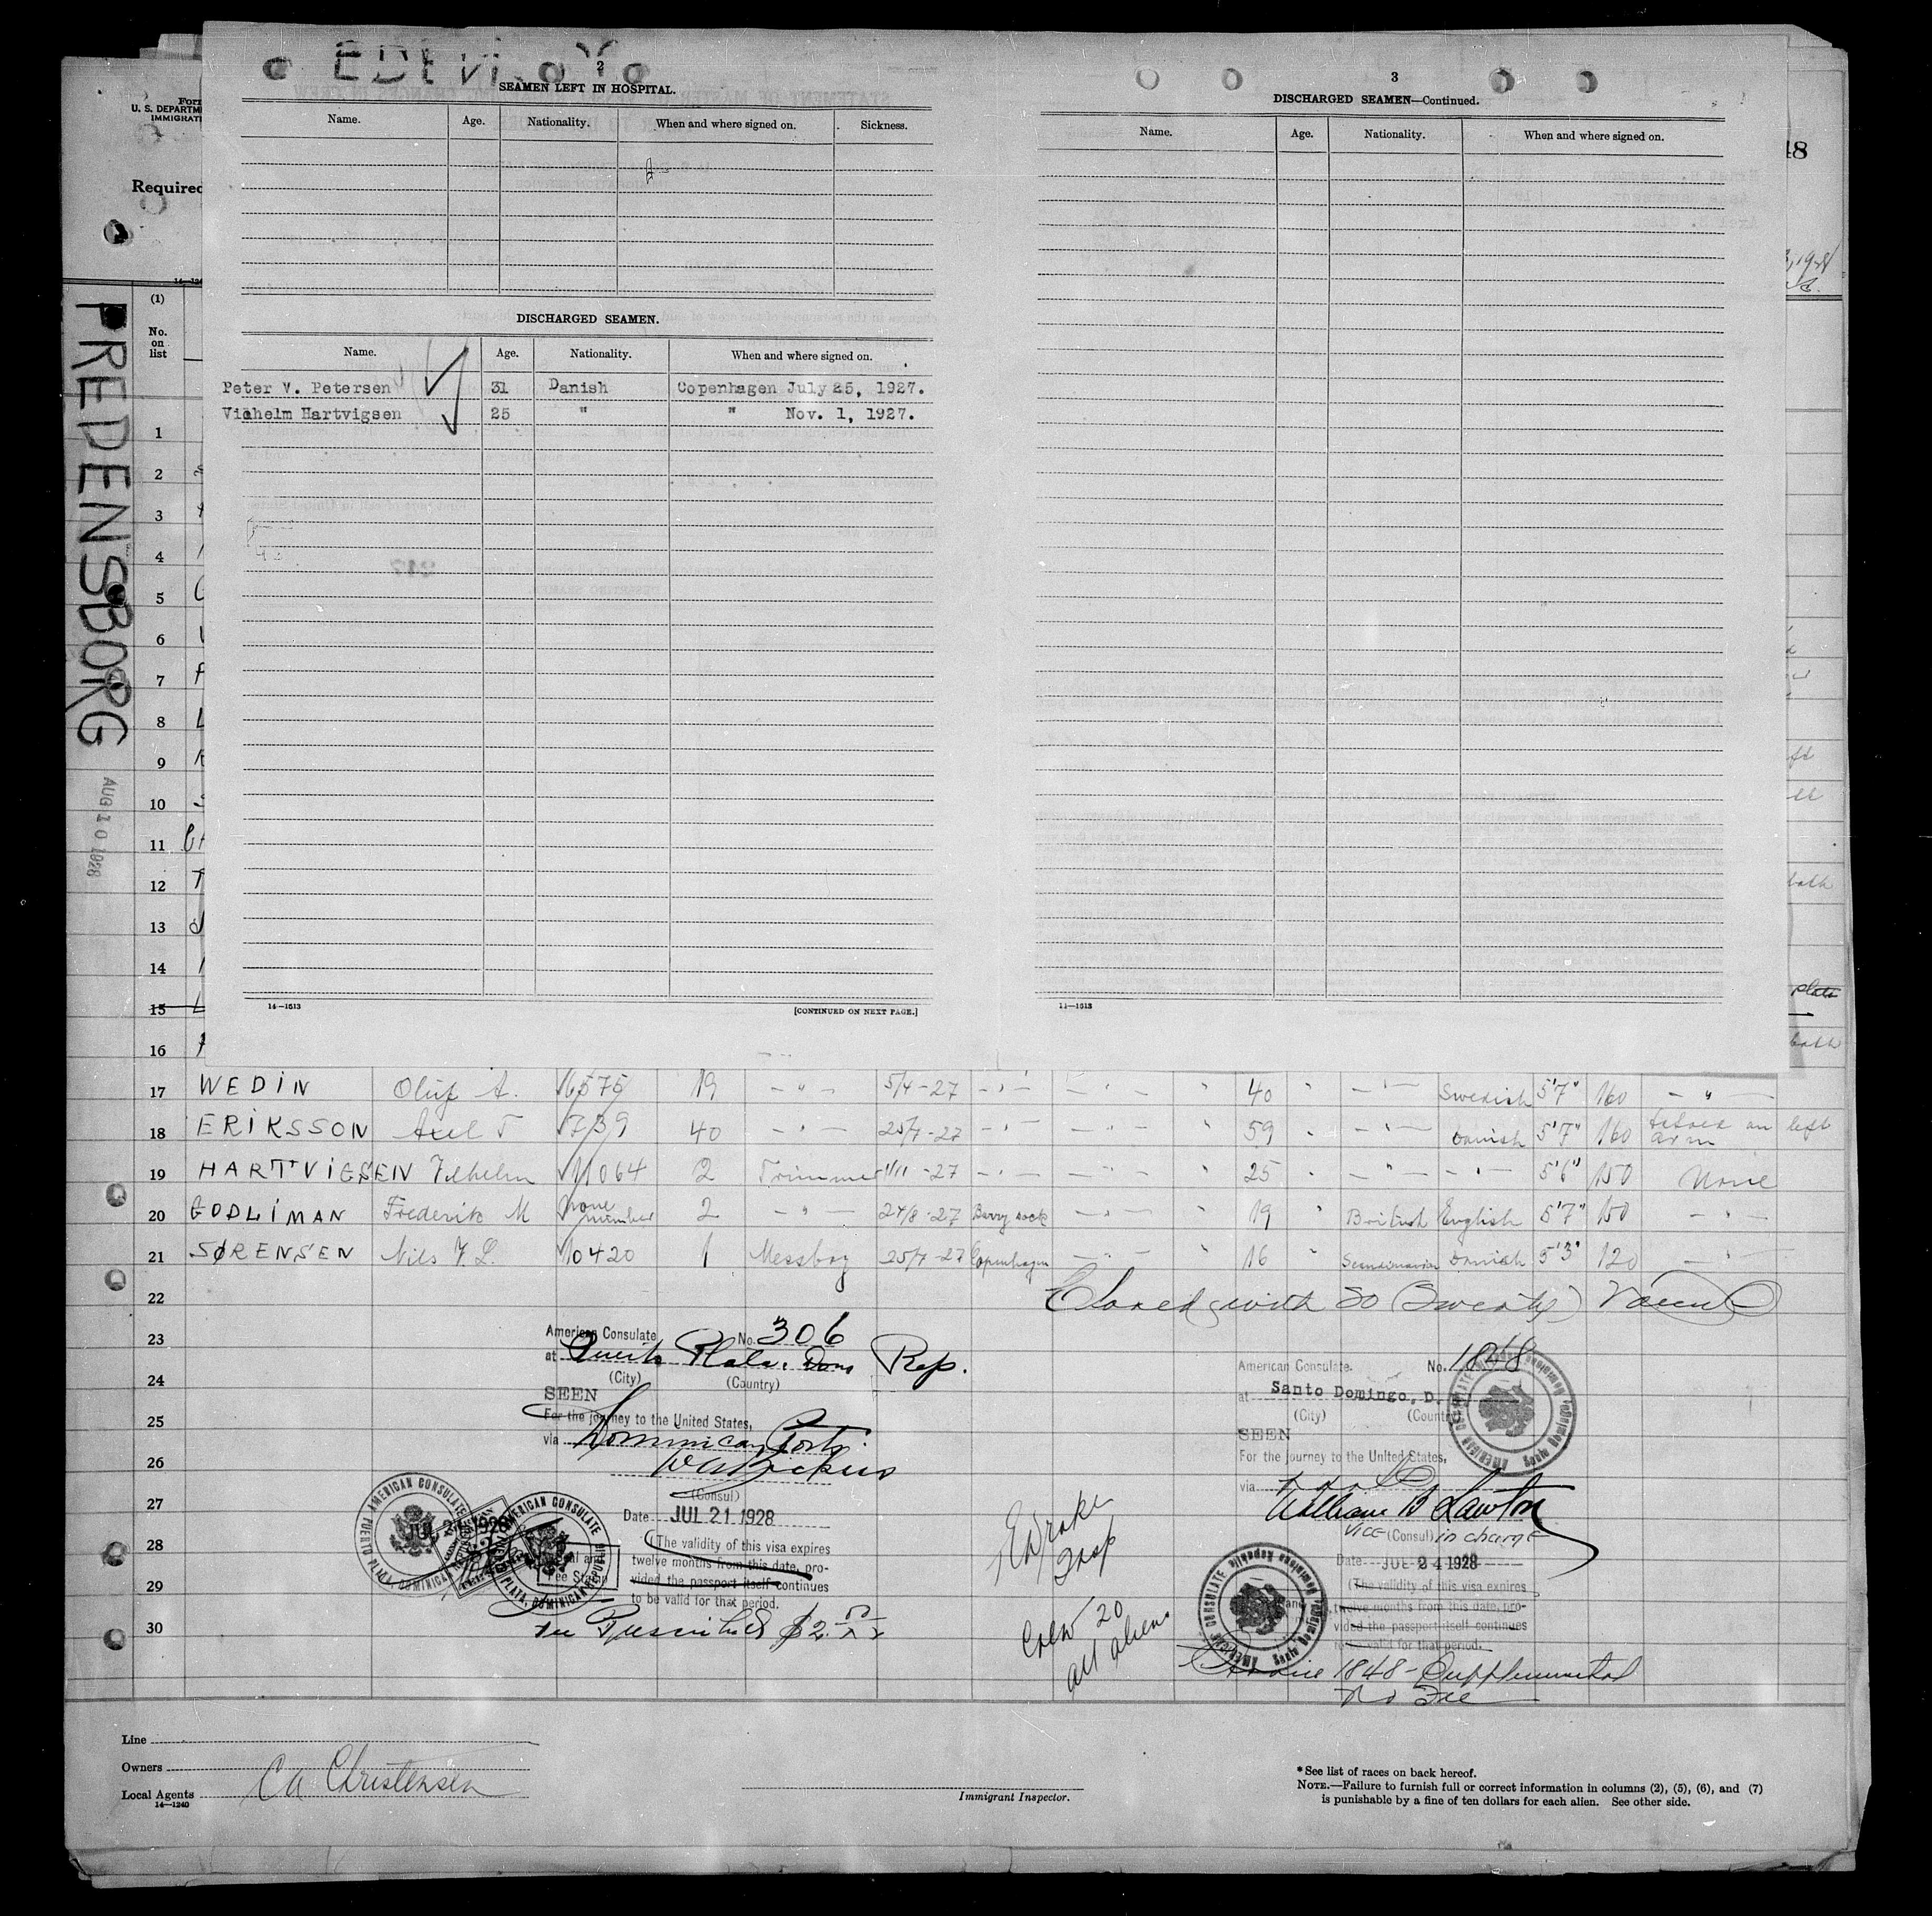 2
SEAMEN LEFT IN HOSPITAL.
Name. Age. Nationality. When and where signed on. Sickness.
DISCHARGED SEAMEN.
Name. Age. Nationality. When and where signed on.
Peter V. Petersen 31 Danish Copenhagen July 25, 1927.
Vilhelm Hartvigsen 25 " " Nov. 1, 1927.
14—1613
[CONTINUED ON NEXT PAGE.]
3
DISCHARGED SEAMEN—Continued.
Name. Age. Nationality. When and where signed on.
Form
U. S. DEPARTM
IMMIGRATI
Required
48
FREDENSBORG
AUG 10 1928
(1)
No. on list
1
2
3
4
5
6
7
8
9
10
11
12
13
14
15
16
17 WEDIN Oluf A. 16575 19 - " - 5/4-27 - " - - " - " 40 " - " - Swedish 5'7" 160 - " -
18 ERIKSSON Axel T 739 40 - " - 25/7-27 - " - - " - " 59 " - " - Danish 5'7" 160 tatoed on left arm
19 HARTVIGSEN Vilhelm 11064 2 Trimmer 1/11-27 - " - - " - " 25 " - " - - " - 5'6" 150 None
20 GODLIMAN Frederik M none number 2 - " - 24/8-27 Barry dock - " - " 19 " British English 5'7" 150 - " -
21 SØRENSEN Nils V. L. 10420 1 Messboy 25/7-27 Copenhagen - " - " 16 " Scandinavian Danish 5'3" 120 - " -
22
23
24
25
26
27
28
29
30
Closed with 20 (Twenty)
American Consulate No. 306
at Puerto Plata, Dom Rep.
(City) (Country)
SEEN
For the journey to the United States,
via Dominican Ports.
(Consul)
Date JUL 21 1928
(The validity of this visa expires
twelve months from this date, pro-
vided the passport itself continues
to be valid for that period.
AMERICAN CONSULATE PUERTO PLATA, DOMINICAN REPUBLIC
JUL 21 1928
Fee Stamp
Fee Prescribed $2.50
Crew 20
all aliens
American Consulate. No. 1848
at Santo Domingo, D.
(City) (Country)
SEEN
For the journey to the United States,
via
William B Lawton
Vice (Consul) in charge
Date JUL 24 1928
(The validity of this visa expires
twelve months from this date, pro-
vided the passport itself continues
to be valid for that period.
Service 1848 - Supplemental
No Fee
Line
Owners
Local Agents C A Christensen
14—1240
Immigrant Inspector.
* See list of races on back hereof.
NOTE.—Failure to furnish full or correct information in columns (2), (5), (6), and (7)
is punishable by a fine of ten dollars for each alien. See other side.